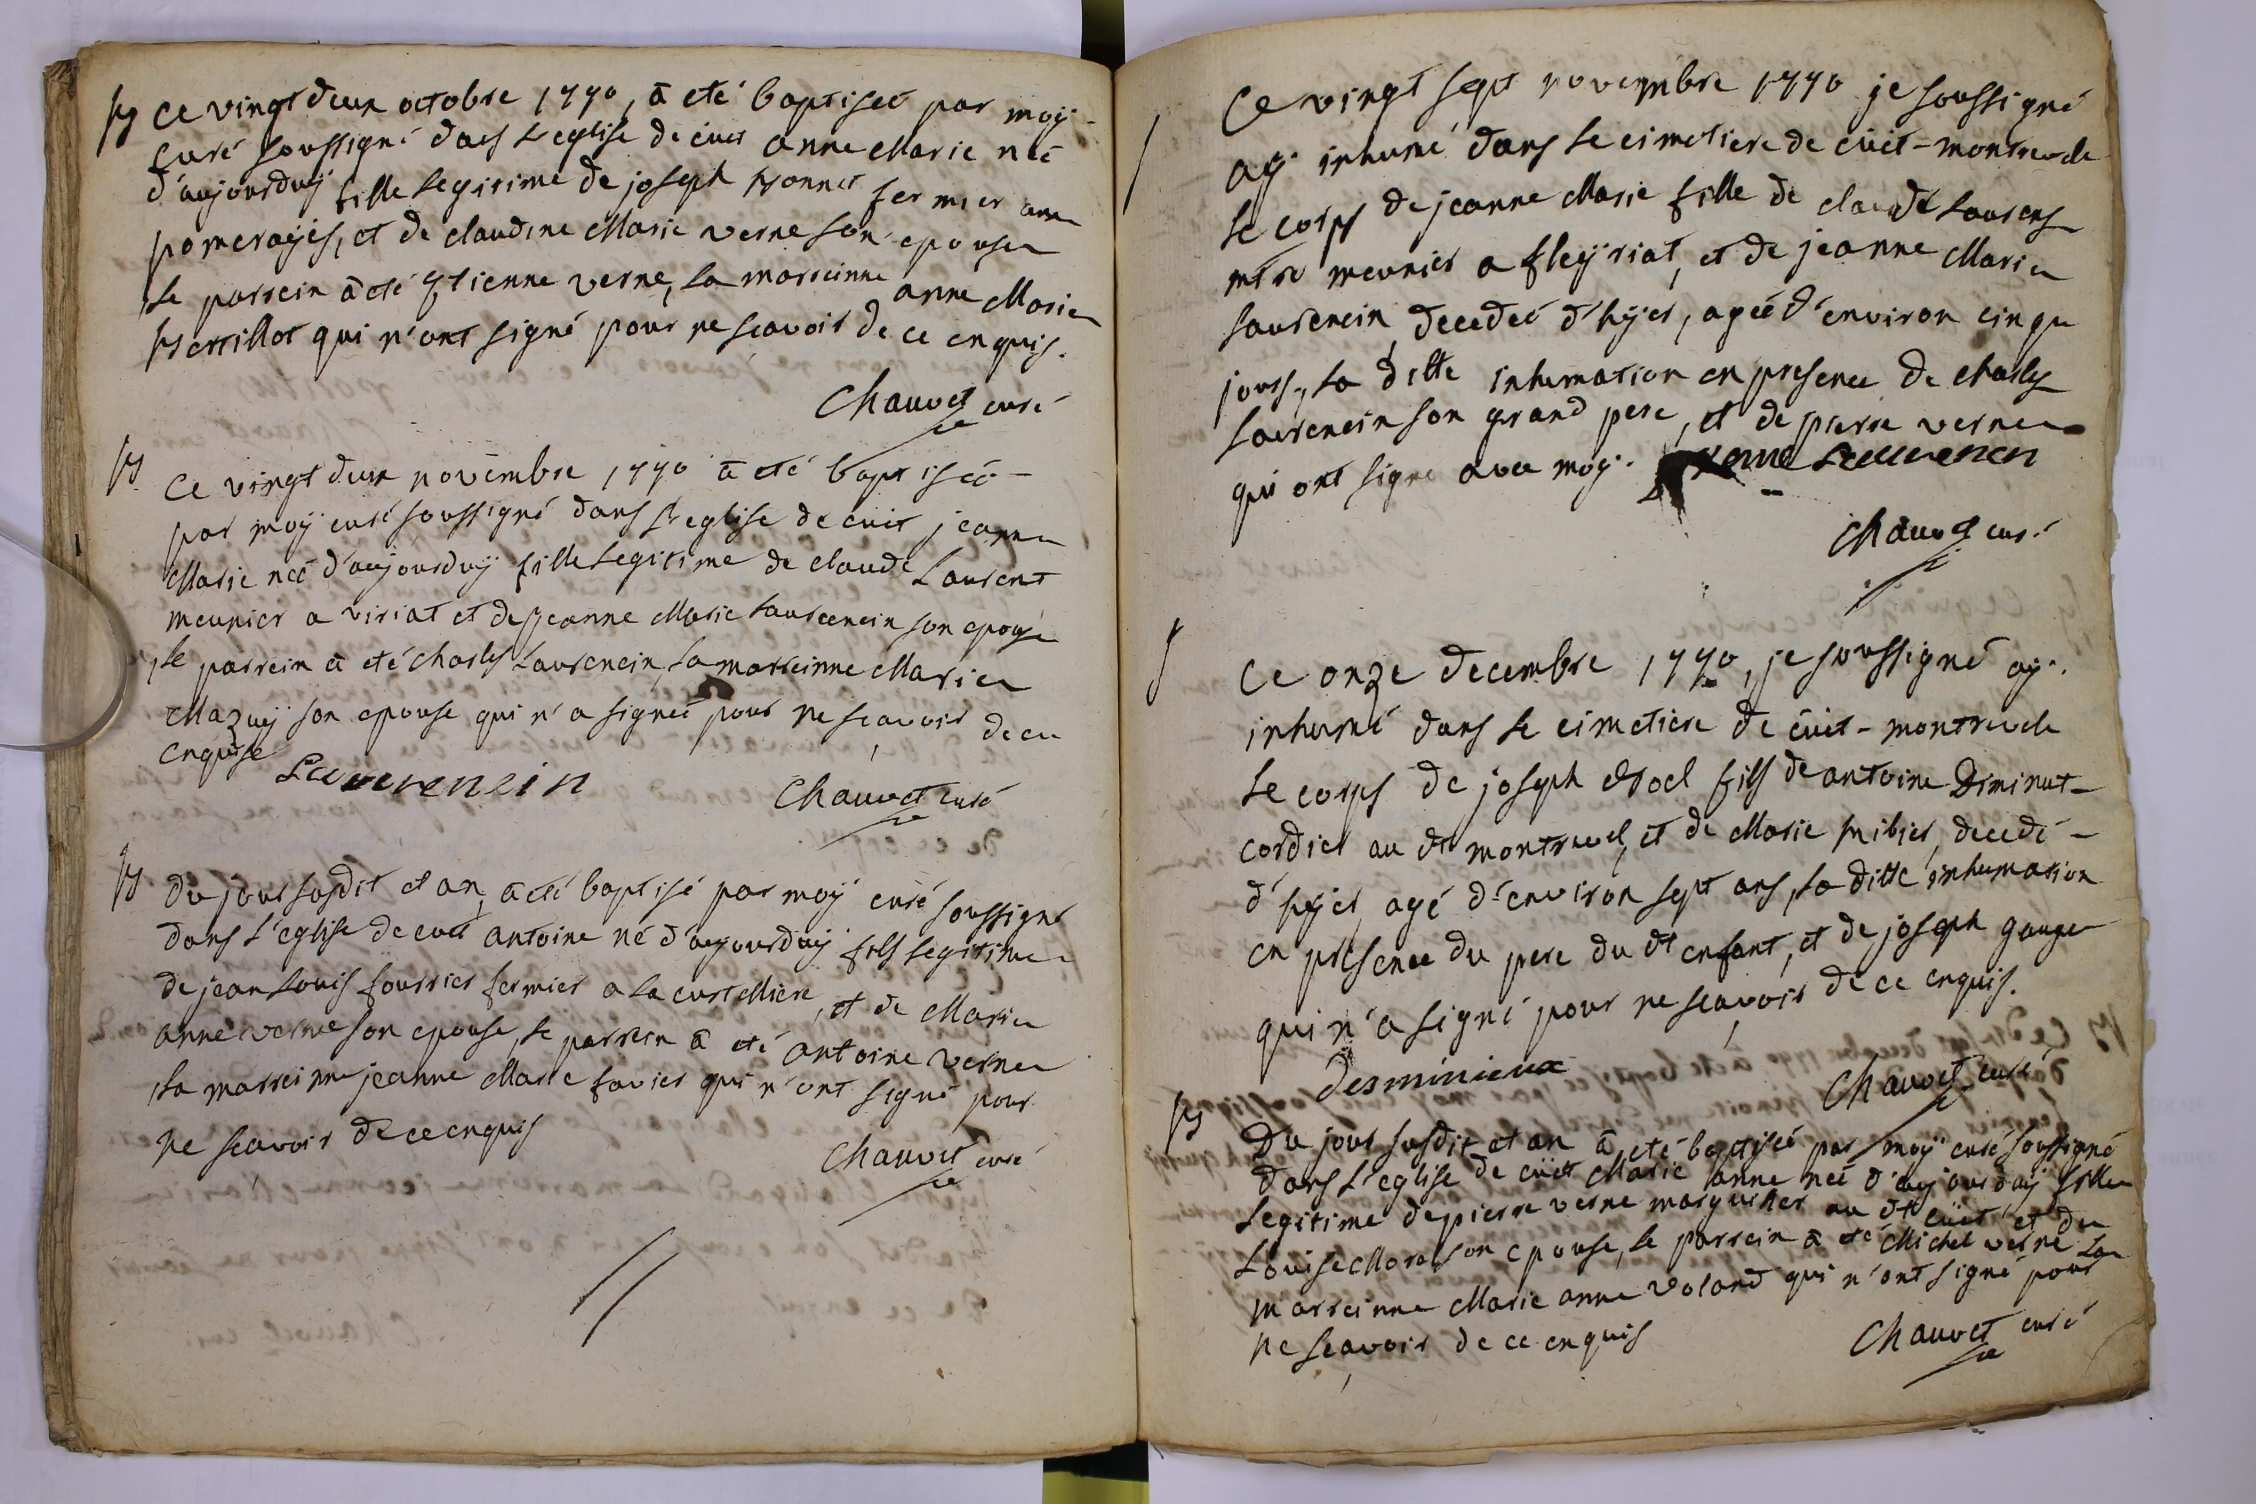 B Ce vingt deux octobre 1770, a eté baptiseé par moÿ
curé soussigné dans l'eglise de cuet anne Marie neé
d'aujourduÿ fille legitime de joseph Bonnet fermier aux
pomerayes, et de claudine Marie verne son epouse
le parrein a eté Etienne verne, la marreinne anne Marie
Bertillot qui n'ont signé pour ne scavoir de ce enquis.
Chauvet curé
B
Ce vingt deux novembre 1770 a eté baptiseé
par moÿ curé soussigné dans l'eglise de cuet jeanne
Marie neé d'aujourduÿ fille legitime de claude Laurent
meunier a viriat et de jeanne Marie laurencin son epouse
le parrein a eté charles laurencin, la marreinne Marie
Mazuÿ son epouse qui n'a signeé pour ne scavoir de ce
enquise
Laurencin
Chauvet curé
B
Du jour susdit et an, a eté baptisé par moÿ curé soussigné
dans l'eglise de cuet antoine né d'aujourduÿ fils legitime
de jean louis fourrier fermier a la curtelliere, et de Marie
anne verne son epouse, le parrein a eté antoine verne
la marreinne jeanne Marie favier qui n'ont signé pour
ne scavoir de ce enquis
Chauvet curé
Ce vingt sept novembre 1770 je soussigné
aÿ inhumé dans le cimetiere de cüet-montrevele
le corps de jeanne Marie fille de claude laurens
mtre meunier a fleÿriat, et de jeanne Marie
laurencin decedeé d'hÿer, ageé d'environ cinq
jours, la ditte inhumation en presence de charles
laurencin son grand pere, et de pierre verne
qui ont signé avec moÿ. verne Laurencin
Chauvet curé
Ce onze decembre 1770, je soussigné aÿ
inhumé dans le cimetiere de cüet-montrevele
le corps de joseph Noel fils de antoine Diminut
cordier au dt montrevel, et de Marie pribier, decedé
d'hÿer, agé d'environ sept ans, la ditte inhumation
en presence du pere du dt enfant, et de joseph gauge
qui n'a signé pour ne scavoir de ce enquis.
desminieux
Chauvet curé
B
Du jour susdit et an a eté baptiseé par moÿ curé soussigné
dans l'eglise de cüet Marie anne neé d'aujourduÿ fille
legitime de pierre verne marguiller au dt cüet et de
louise Morel son epouse, le parrein a eté Michel verne la
marreinne Marie anne voland qui n'ont signé pour
ne scavoir de ce enquis
Chauvet curé